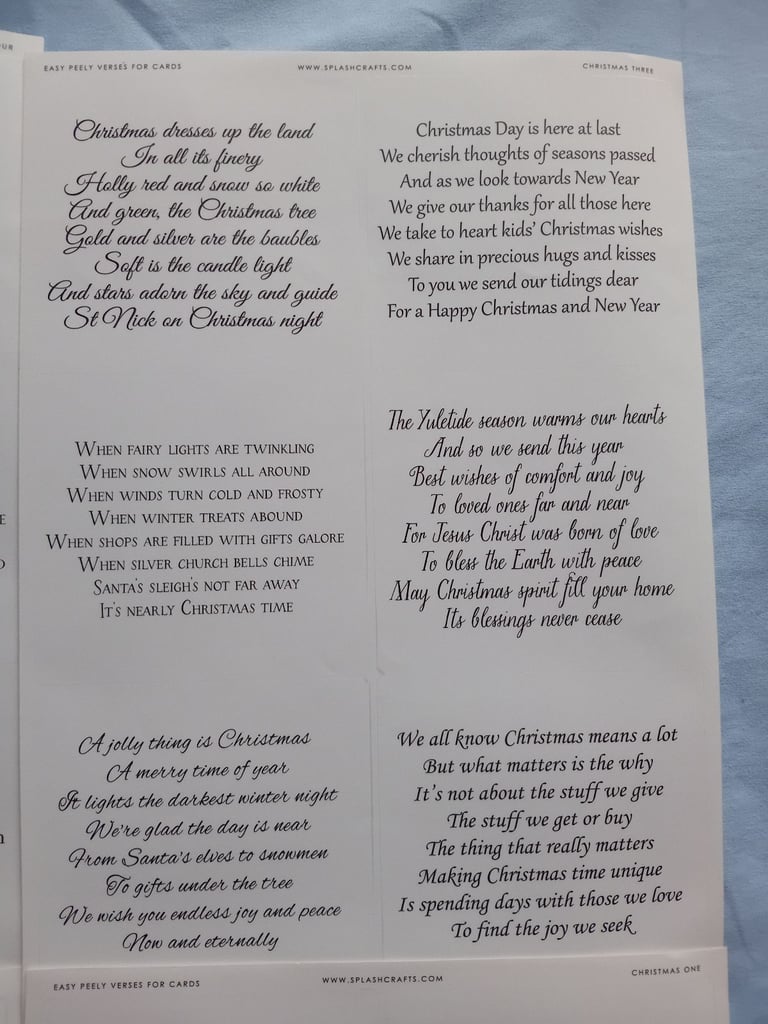 UR
EASY PEELY VERSES FOR CARDS
WWW.SPLASHCRAFTS.COM
CHRISTMAS THREE
Christmas dresses up the land
In all its finery
Holly red and snow so white
And green, the Christmas tree
Gold and silver are the baubles
Soft is the candle light
And stars adorn the sky and guide
St Nick on Christmas night
Christmas Day is here at last
We cherish thoughts of seasons passed
And as we look towards New Year
We give our thanks for all those here
We take to heart kids' Christmas wishes
We share in precious hugs and kisses
To you we send our tidings dear
For a Happy Christmas and New Year
WHEN FAIRY LIGHTS ARE TWINKLING
WHEN SNOW SWIRLS ALL AROUND
WHEN WINDS TURN COLD AND FROSTY
WHEN WINTER TREATS ABOUND
WHEN SHOPS ARE FILLED WITH GIFTS GALORE
WHEN SILVER CHURCH BELLS CHIME
SANTA'S SLEIGH'S NOT FAR AWAY
IT'S NEARLY CHRISTMAS TIME
The Yuletide season warms our hearts
And so we send this year
Best wishes of comfort and joy
To loved ones far and near
For Jesus Christ was born of love
To bless the Earth with peace
May Christmas spirit fill your home
Its blessings never cease
A jolly thing is Christmas
A merry time of year
It lights the darkest winter night
We're glad the day is near
From Santa's elves to snowmen
To gifts under the tree
We wish you endless joy and peace
Now and eternally
We all know Christmas means a lot
But what matters is the why
It's not about the stuff we give
The stuff we get or buy
The thing that really matters
Making Christmas time unique
Is spending days with those we love
To find the joy we seek
EASY PEELY VERSES FOR CARDS
WWW.SPLASHCRAFTS.COM
CHRISTMAS ONE